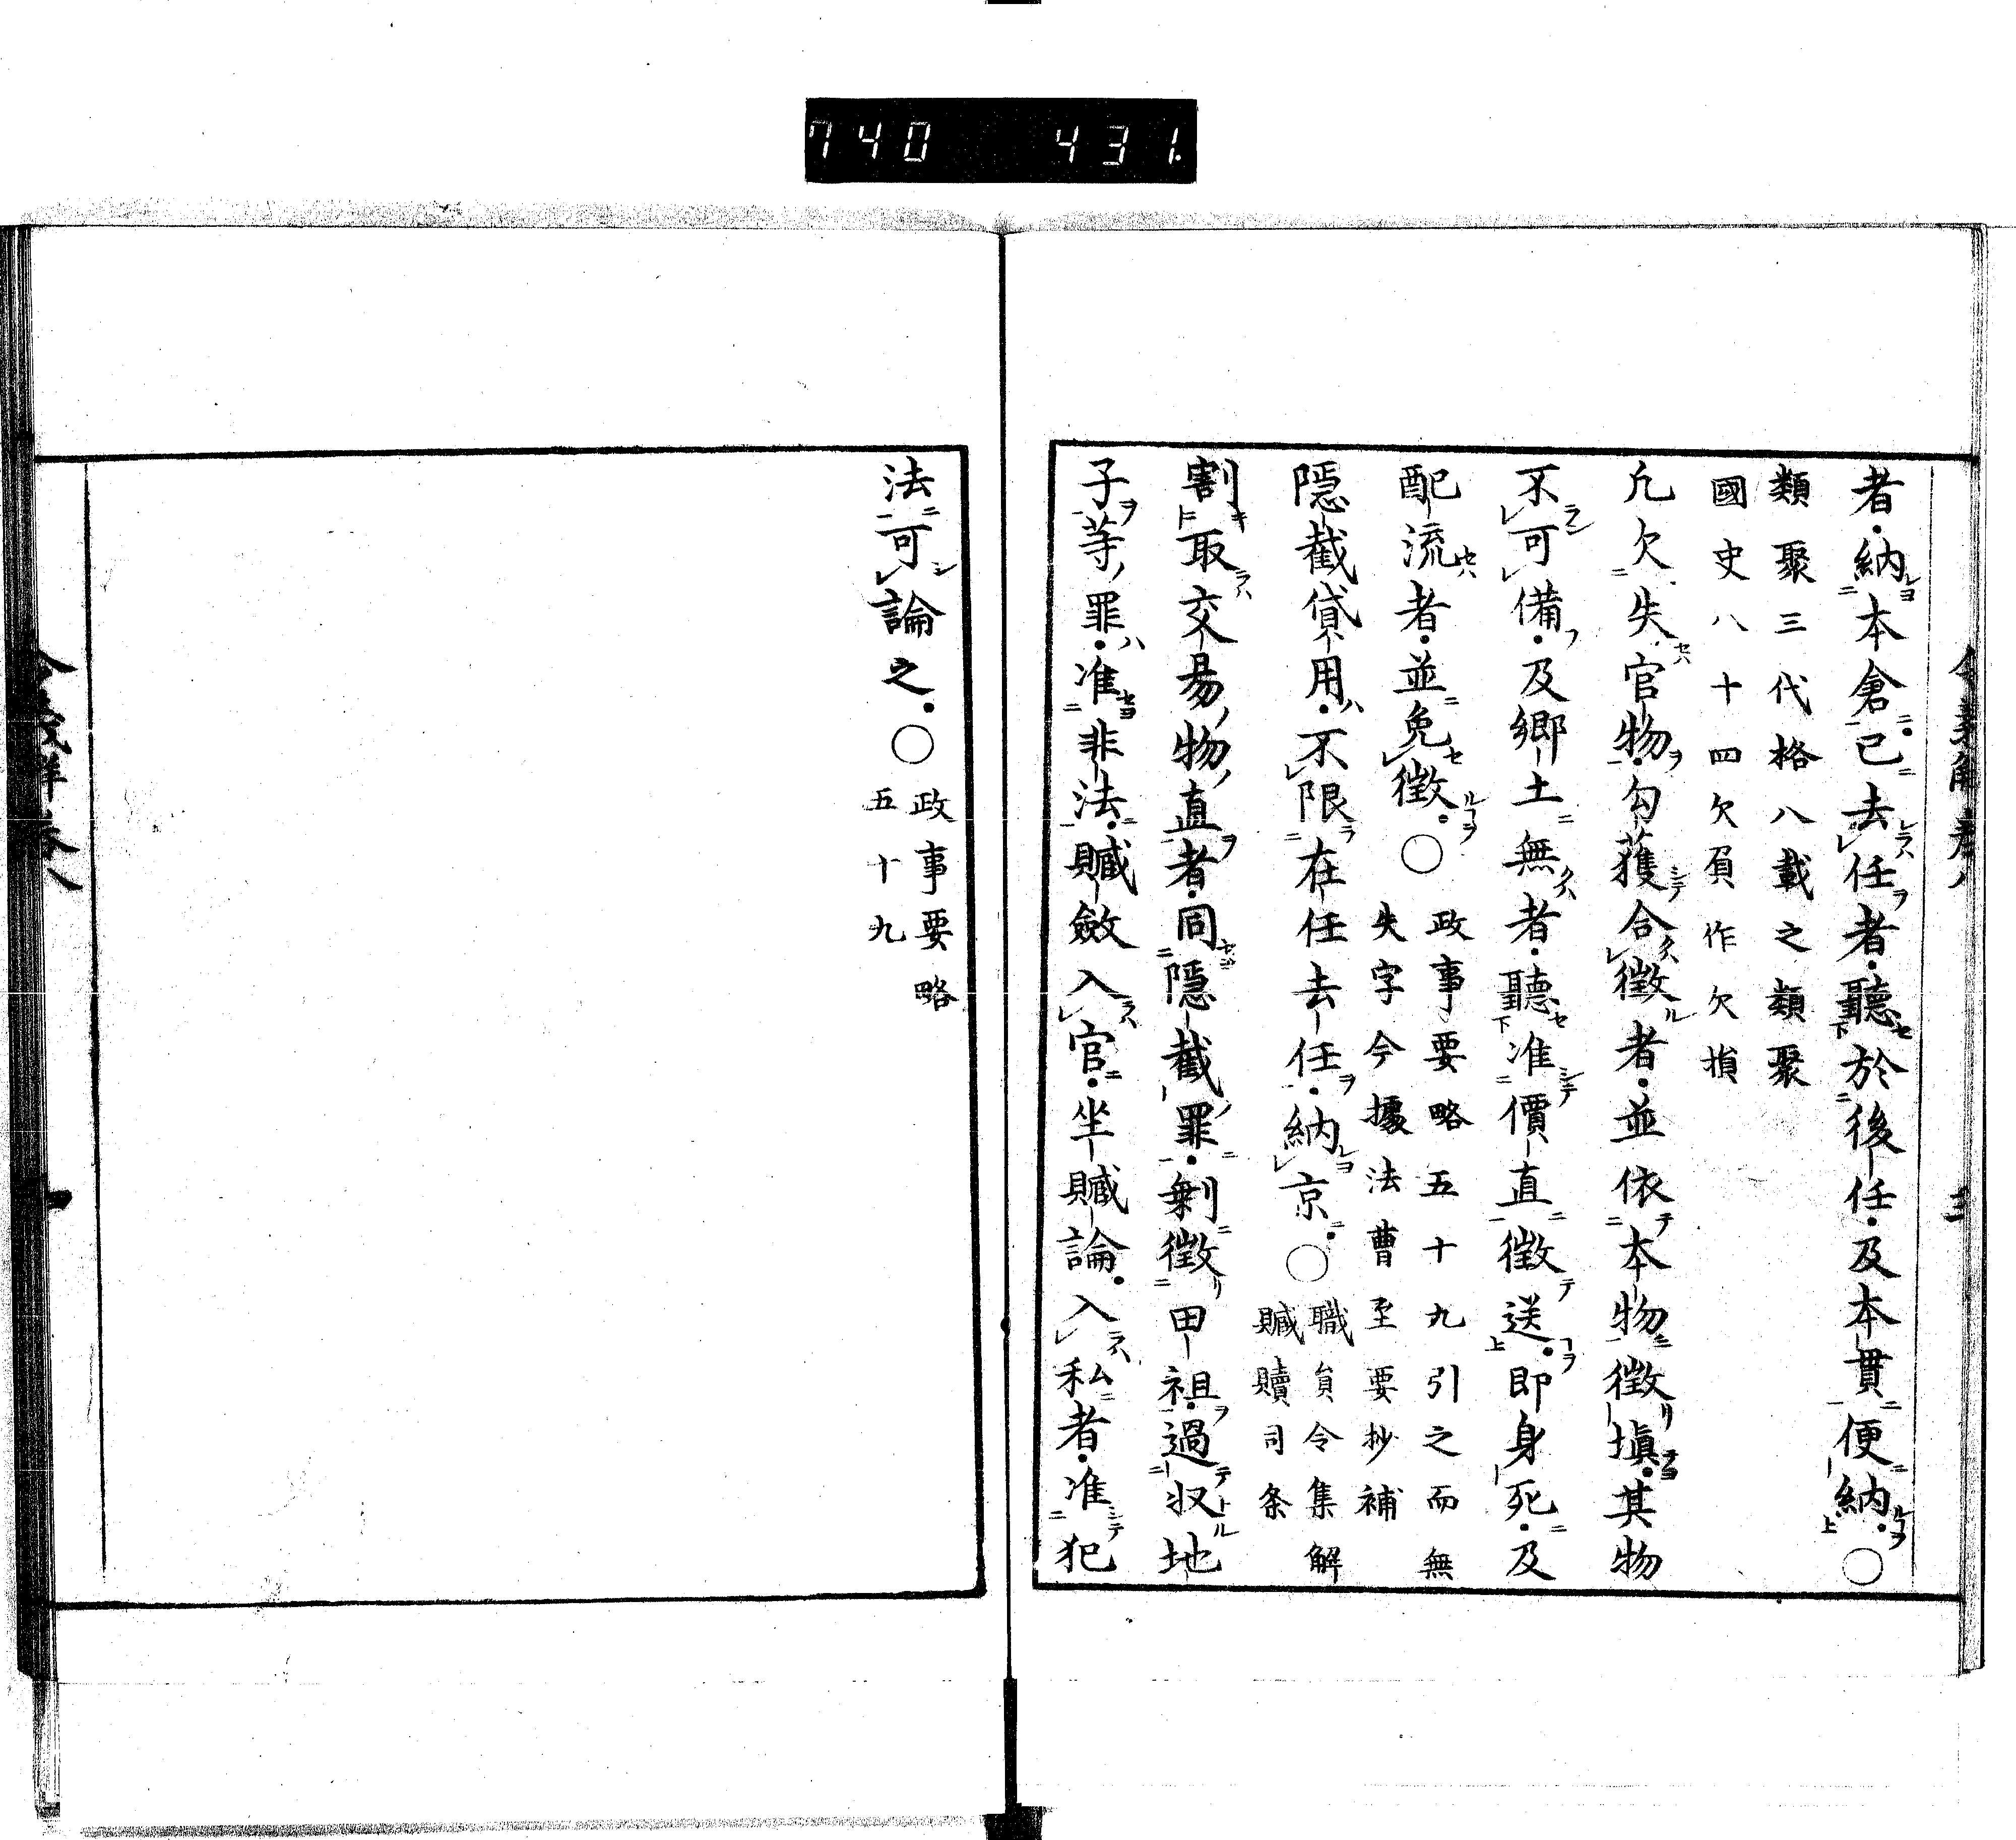 740 431.
者納本倉已去任者聽於後任及本貫便納〇
類聚三代格八載之類聚
國史八十四欠負作欠損
凢欠失官物勾獲合徵者並依本物徵塡其物
不可備及鄉土無者聽准價直徵送即身死及
配流者並免徵〇
政事要略五十九引之而無
失字今據法曹至要抄補
隱截貸用不限在任去任納京〇
職員令集解
贓贖司条
割取交易物直者同隱截罪剩徵田租過收地
子等罪准非法贓斂入官坐贓論入私者准犯
法可論之〇
政事要略
五十九